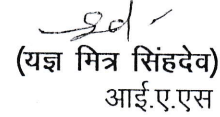 (यज्ञ मित्र सिंहदेव)
आई.ए.एस